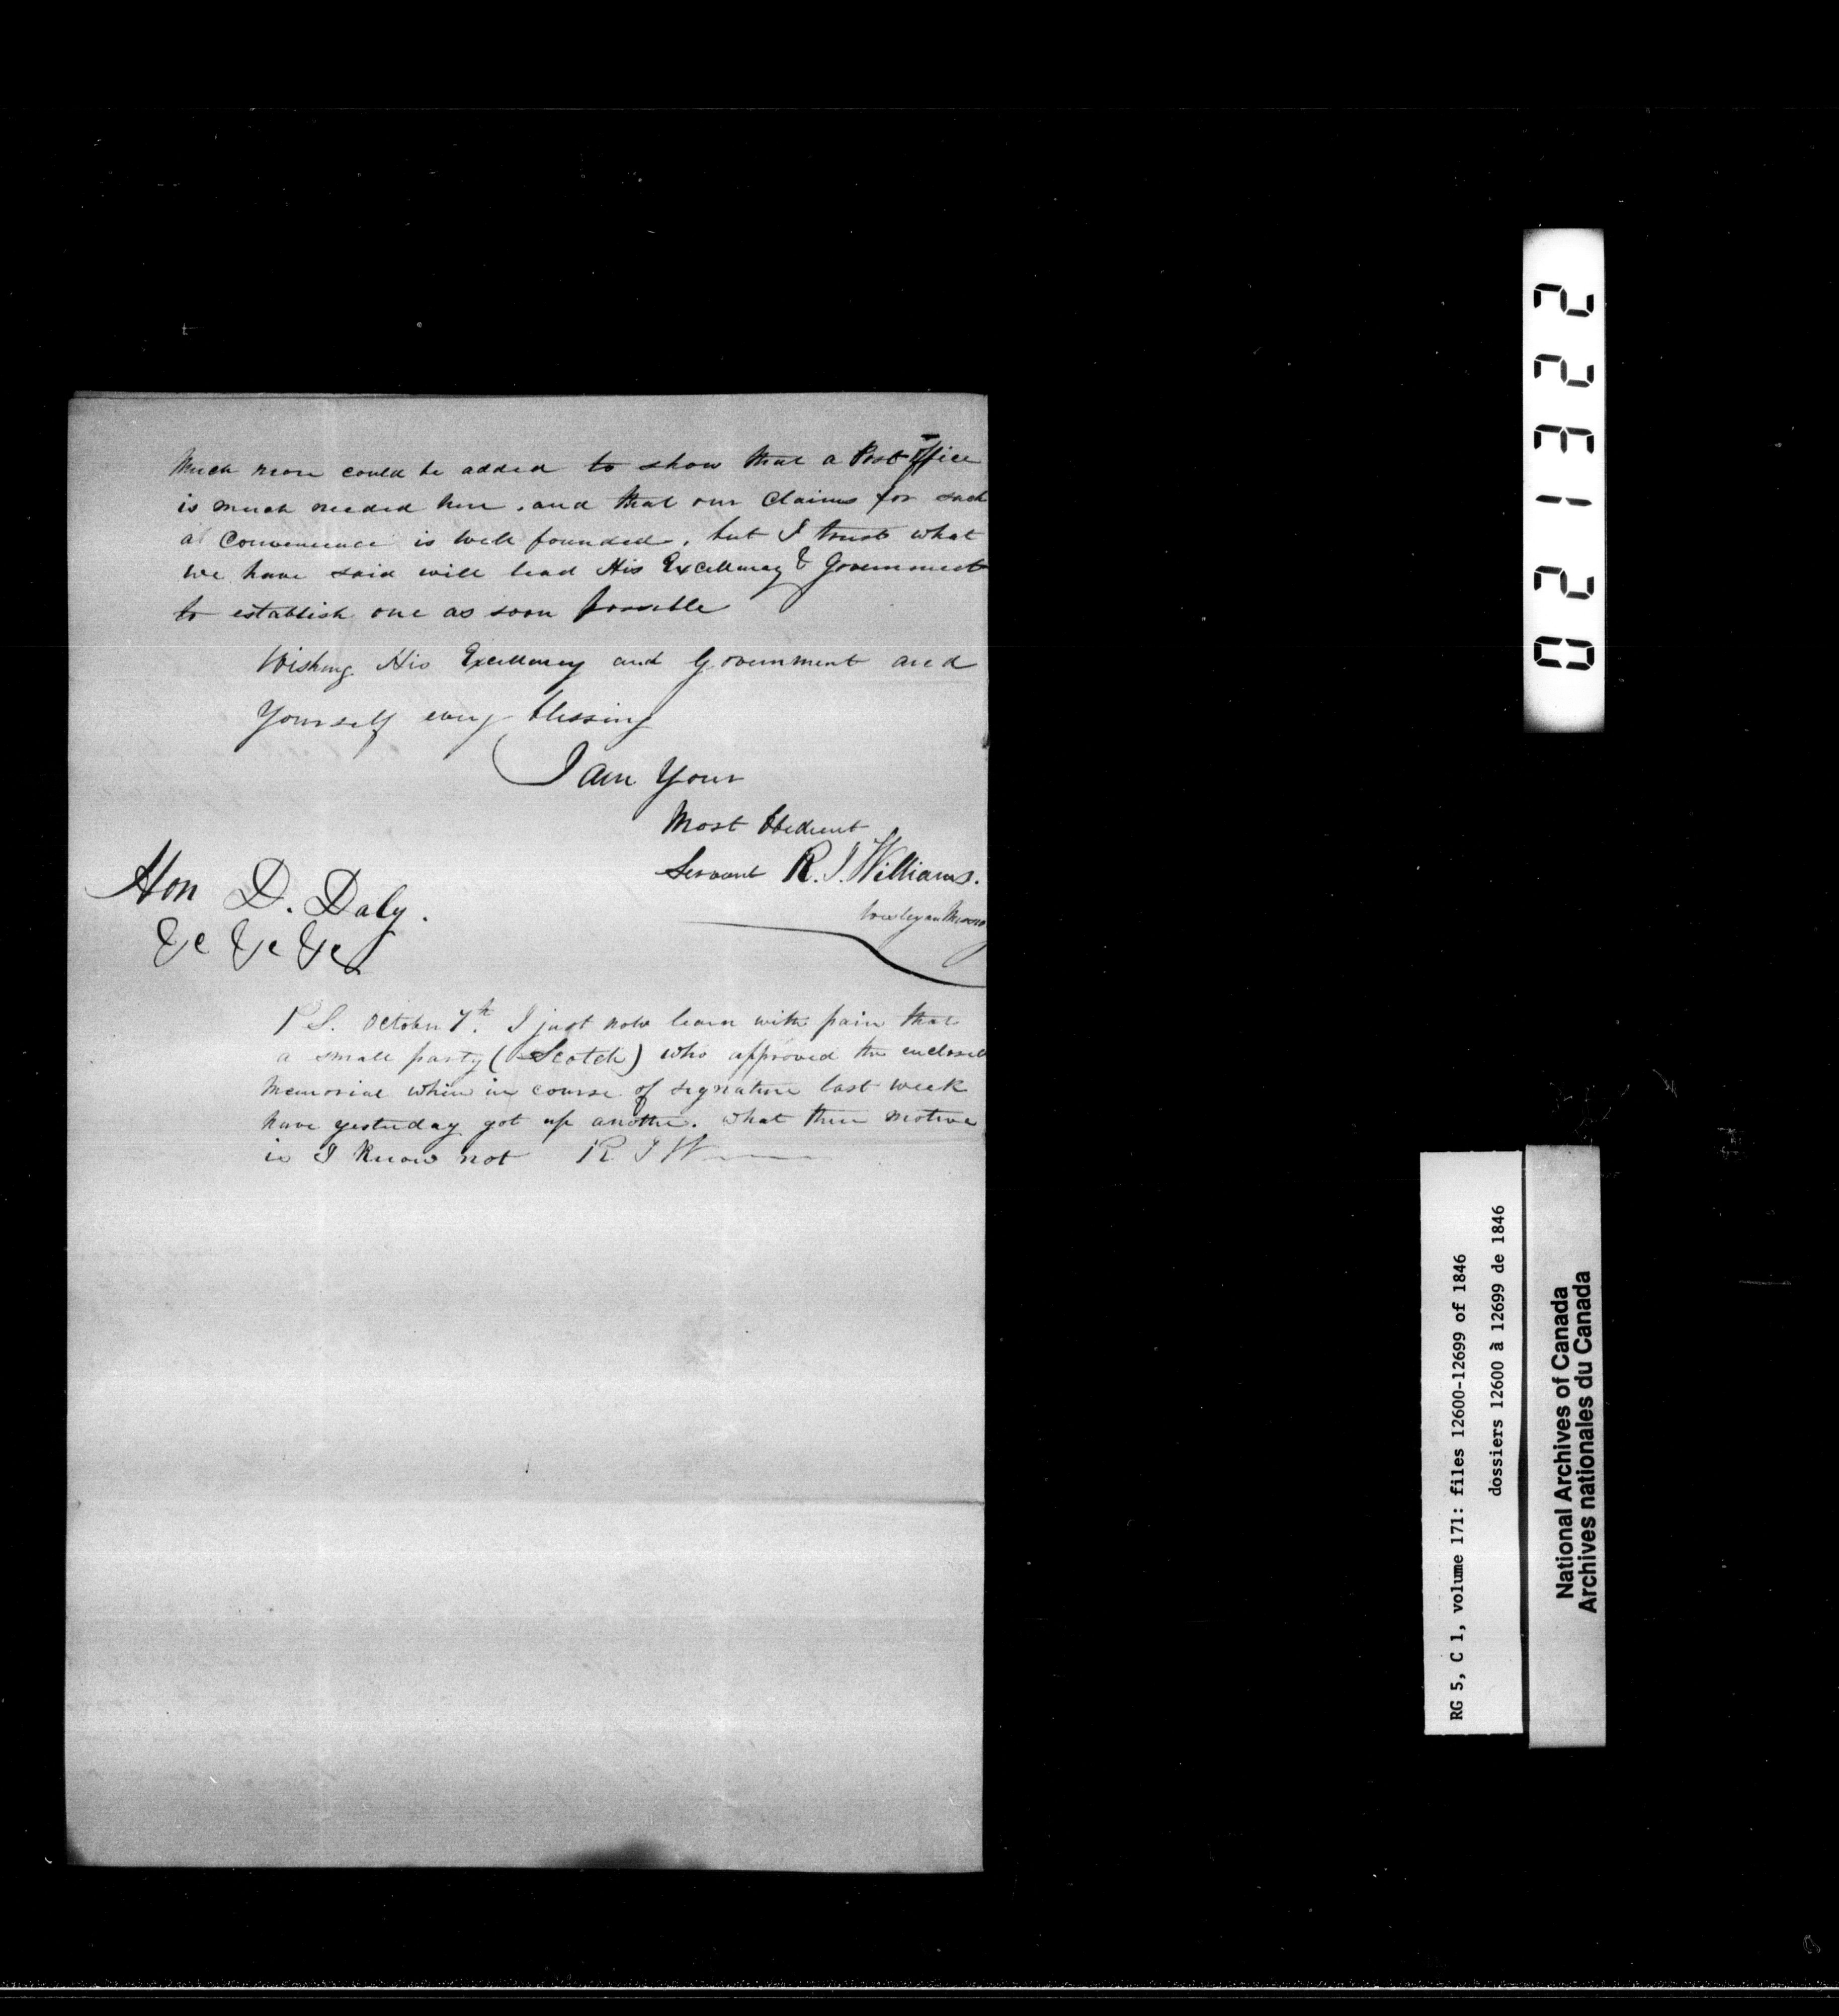 Much more could be added to show that a Post Office
is much needed here, and that our Claims for such
a Convenience is well founded, but I trust what
We have said will lead His Excellency & Government
to establish one as soon possible
Wishing His Excellency and Government and
Yourself every blessing
I am Your
Most Obedient
Servant R. J. Williams.
Wesleyan
Hon D. Daly.
&c &c &c
P S. October 7th. I just now learn with pain that
a small party (Scotch) who approved the enclosed
Memorial when in course of signature last week
have yesterday got up another. What their motive
is I know not R J W
021322
RG 5, C 1, volume 171: files 12600-12699 of 1846
dossiers 12600 à 12699 de 1846
National Archives of Canada
Archives nationales du Canada